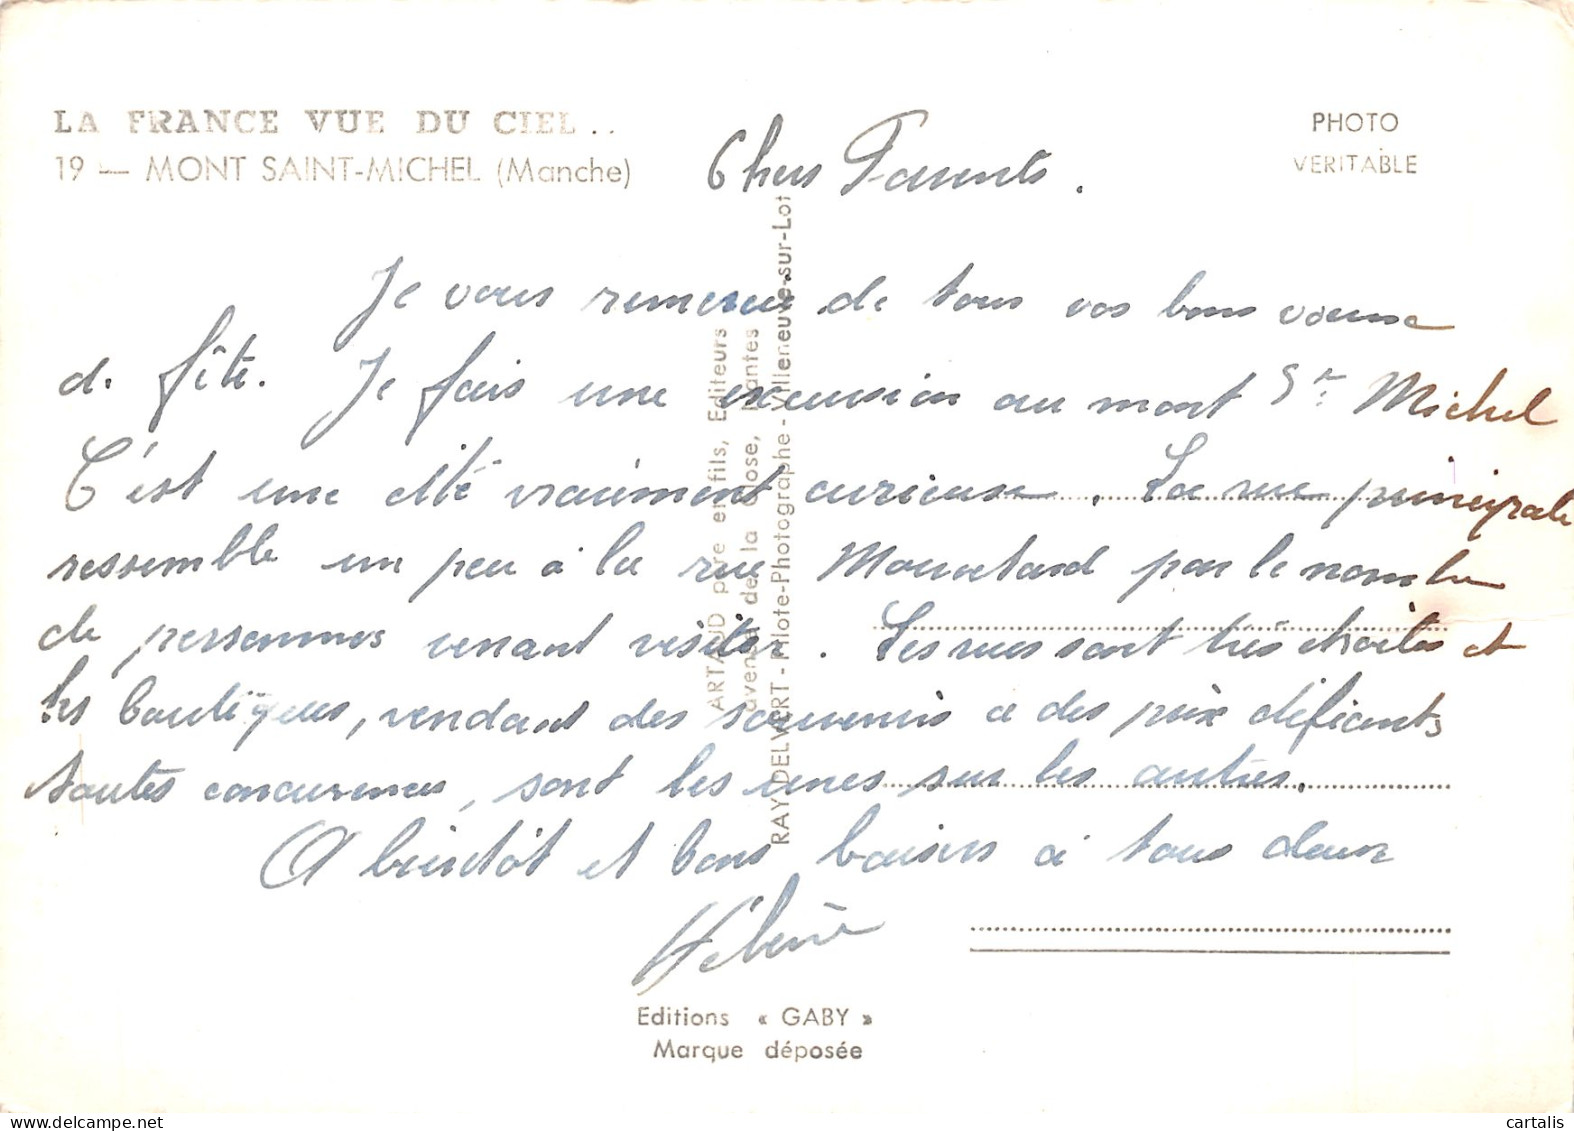 LA FRANCE VUE DU CIEL..
19 — MONT SAINT-MICHEL (Manche)
PHOTO
VERITABLE
Chers Parents.
Je vous remercie de tous vos bons voeux
de fête. Je fais une excursion au mont St Michel
C'est une cité vraiment curieuse. La rue principale
ressemble un peu à la rue Mouvetard par le nombre
de personnes venant visiter. Les rues sont très étroites et
les boutiques, vendant des souvenirs a des prix défiants
toutes concurences, sont les unes sur les autres.
A bientôt et bons baisers à tous deux
Hélène
ARTAUD père et fils, Editeurs
avenue de la Close, Nantes
RAY DELVERT - Pilote-Photographe - Villeneuve-sur-Lot
Editions « GABY »
Marque déposée
cartalis